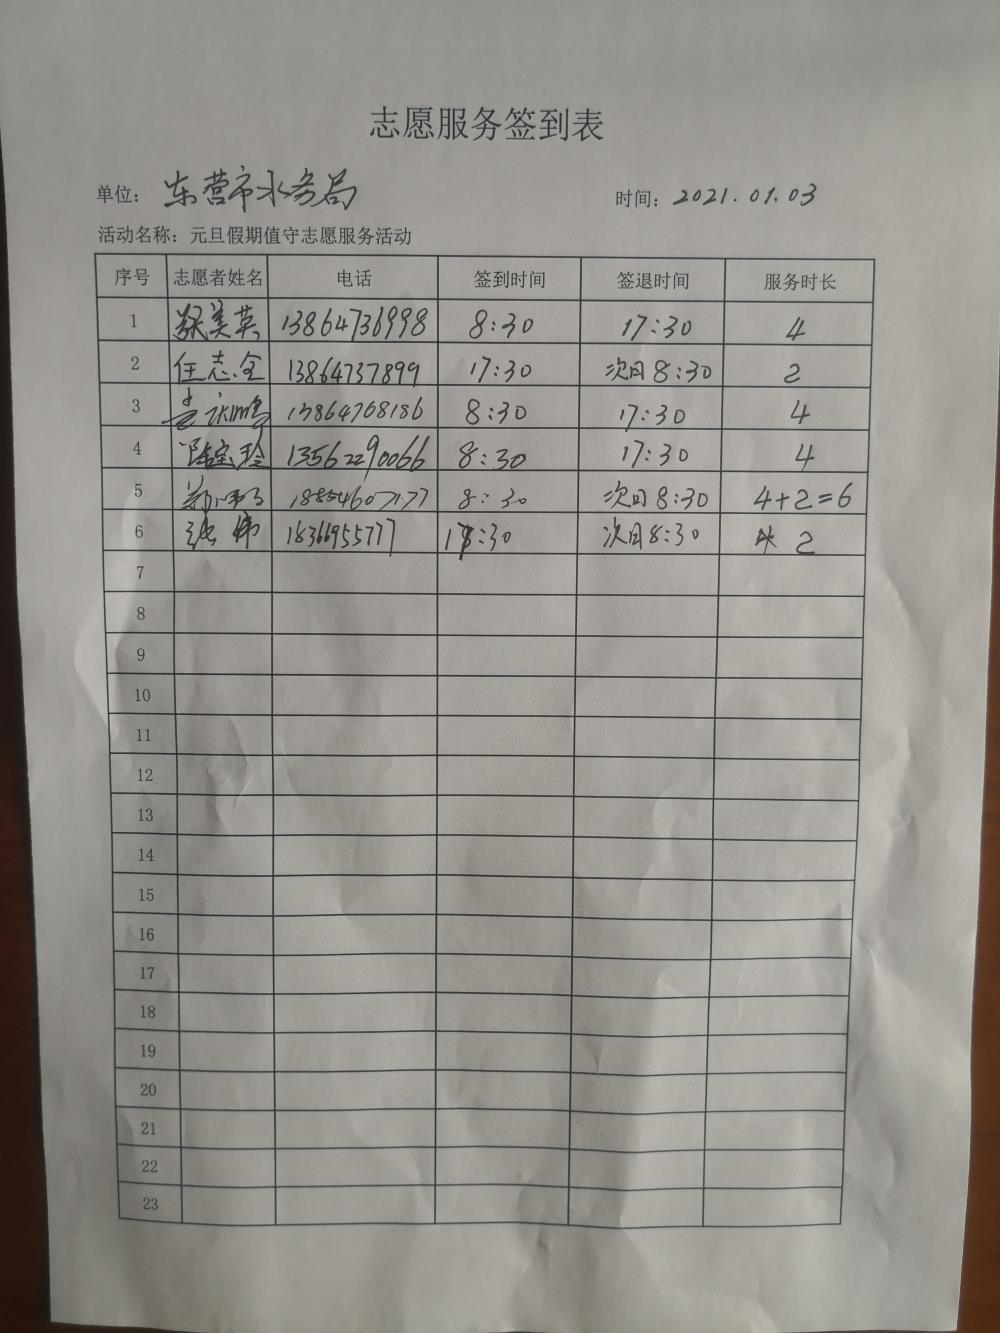 志愿服务签到表
单位：东营市水务局 时间：2021.01.03
活动名称：元旦假期值守志愿服务活动
序号 志愿者姓名 电话 签到时间 签退时间 服务时长
1 美英 13864736998 8:30 17:30 4
2 任志全 13864737899 17:30 次日8:30 2
3 13864768186 8:30 17:30 4
4 陆宝玲 13562290066 8:30 17:30 4
5 18854607177 8:30 次日8:30 4+2=6
6 张伟 18366955777 17:30 次日8:30 2
7
8
9
10
11
12
13
14
15
16
17
18
19
20
21
22
23